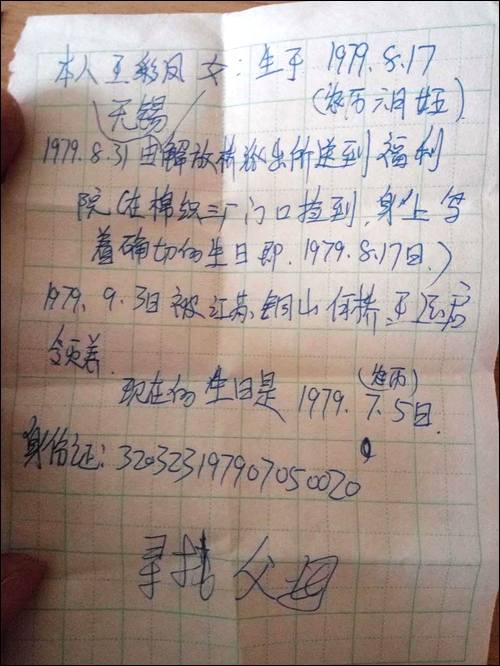 本人王彩凤 女: 生于 1979.8.17
(农历六月廿五)
无锡
1979.8.31 由解放桥派出所送到福利
院(在棉织三厂门口捡到,身上写
着确切的生日即. 1979.8.17日.)
1979. 9. 3日 被江苏 铜山 何桥 王
领养.
(农历)
现在的生日是 1979. 7. 5日.
身份证: 320323197907050020
寻找 父母